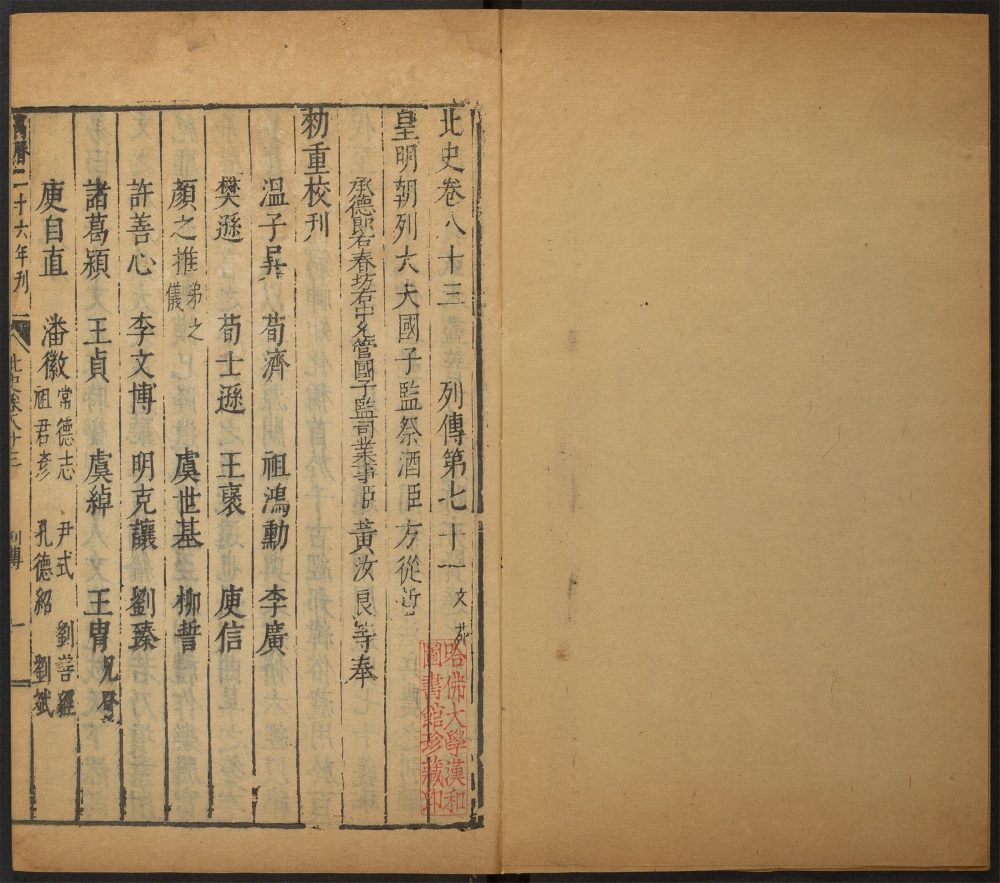 北史卷八十三　列傳第七十一　文苑
皇明朝列大夫國子監祭酒臣方從哲
承德郎右春坊右中允管國子監司業事臣黃汝良等奉
勑重校刊
温子昇　荀濟　祖鴻勳　李廣
樊遜　荀士遜　王襃　庾信
顏之推弟之儀　虞世基　柳䛒
許善心　李文博　明克讓　劉臻
諸葛潁　王貞　虞綽　王胄兄眘
庾自直　潘徽　常德志　尹式　劉善經
祖君彥　孔德紹　劉斌
萬曆二十六年刊
北史卷八十三
列傳
一
哈佛大學漢和
圖書館珍藏印